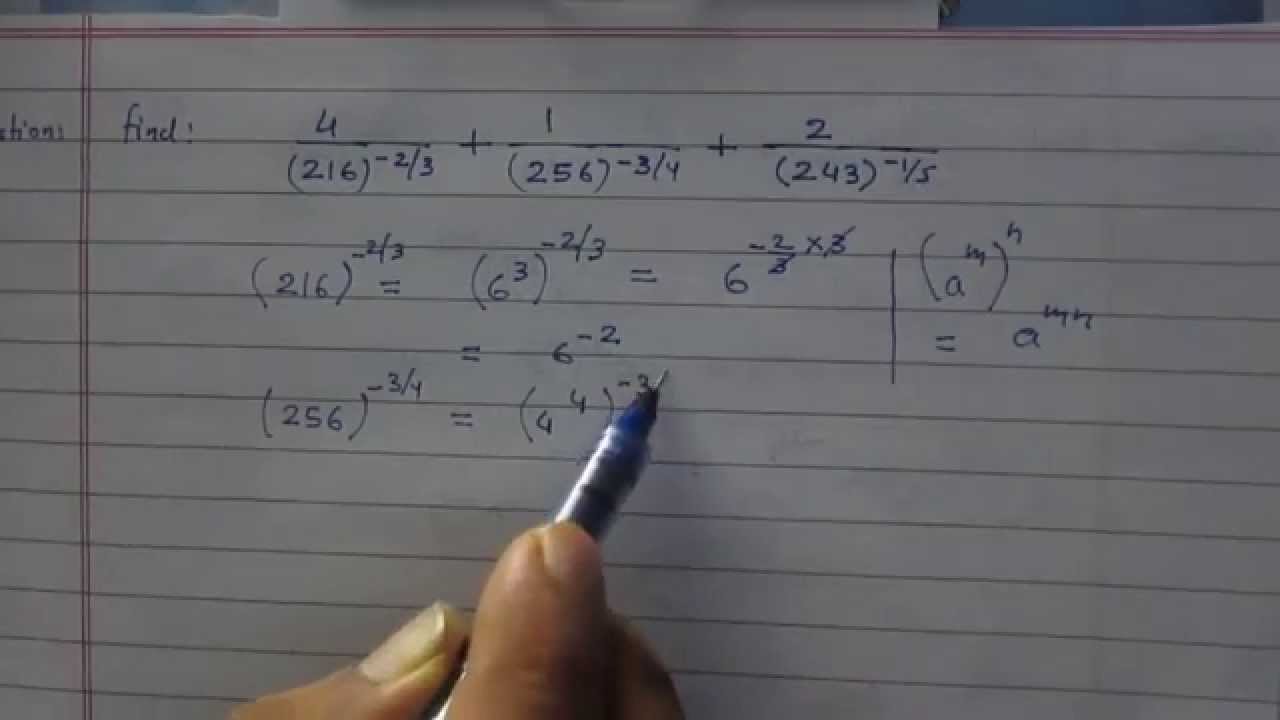 stion: find: 4/(216)^-2/3 + 1/(256)^-3/4 + 2/(243)^-1/5
(216)^-2/3 = (6^3)^-2/3 = 6^-2/3 × 3
(a^m)^n
= a^mn
= 6^-2
(256)^-3/4 = (4^4)^-3/